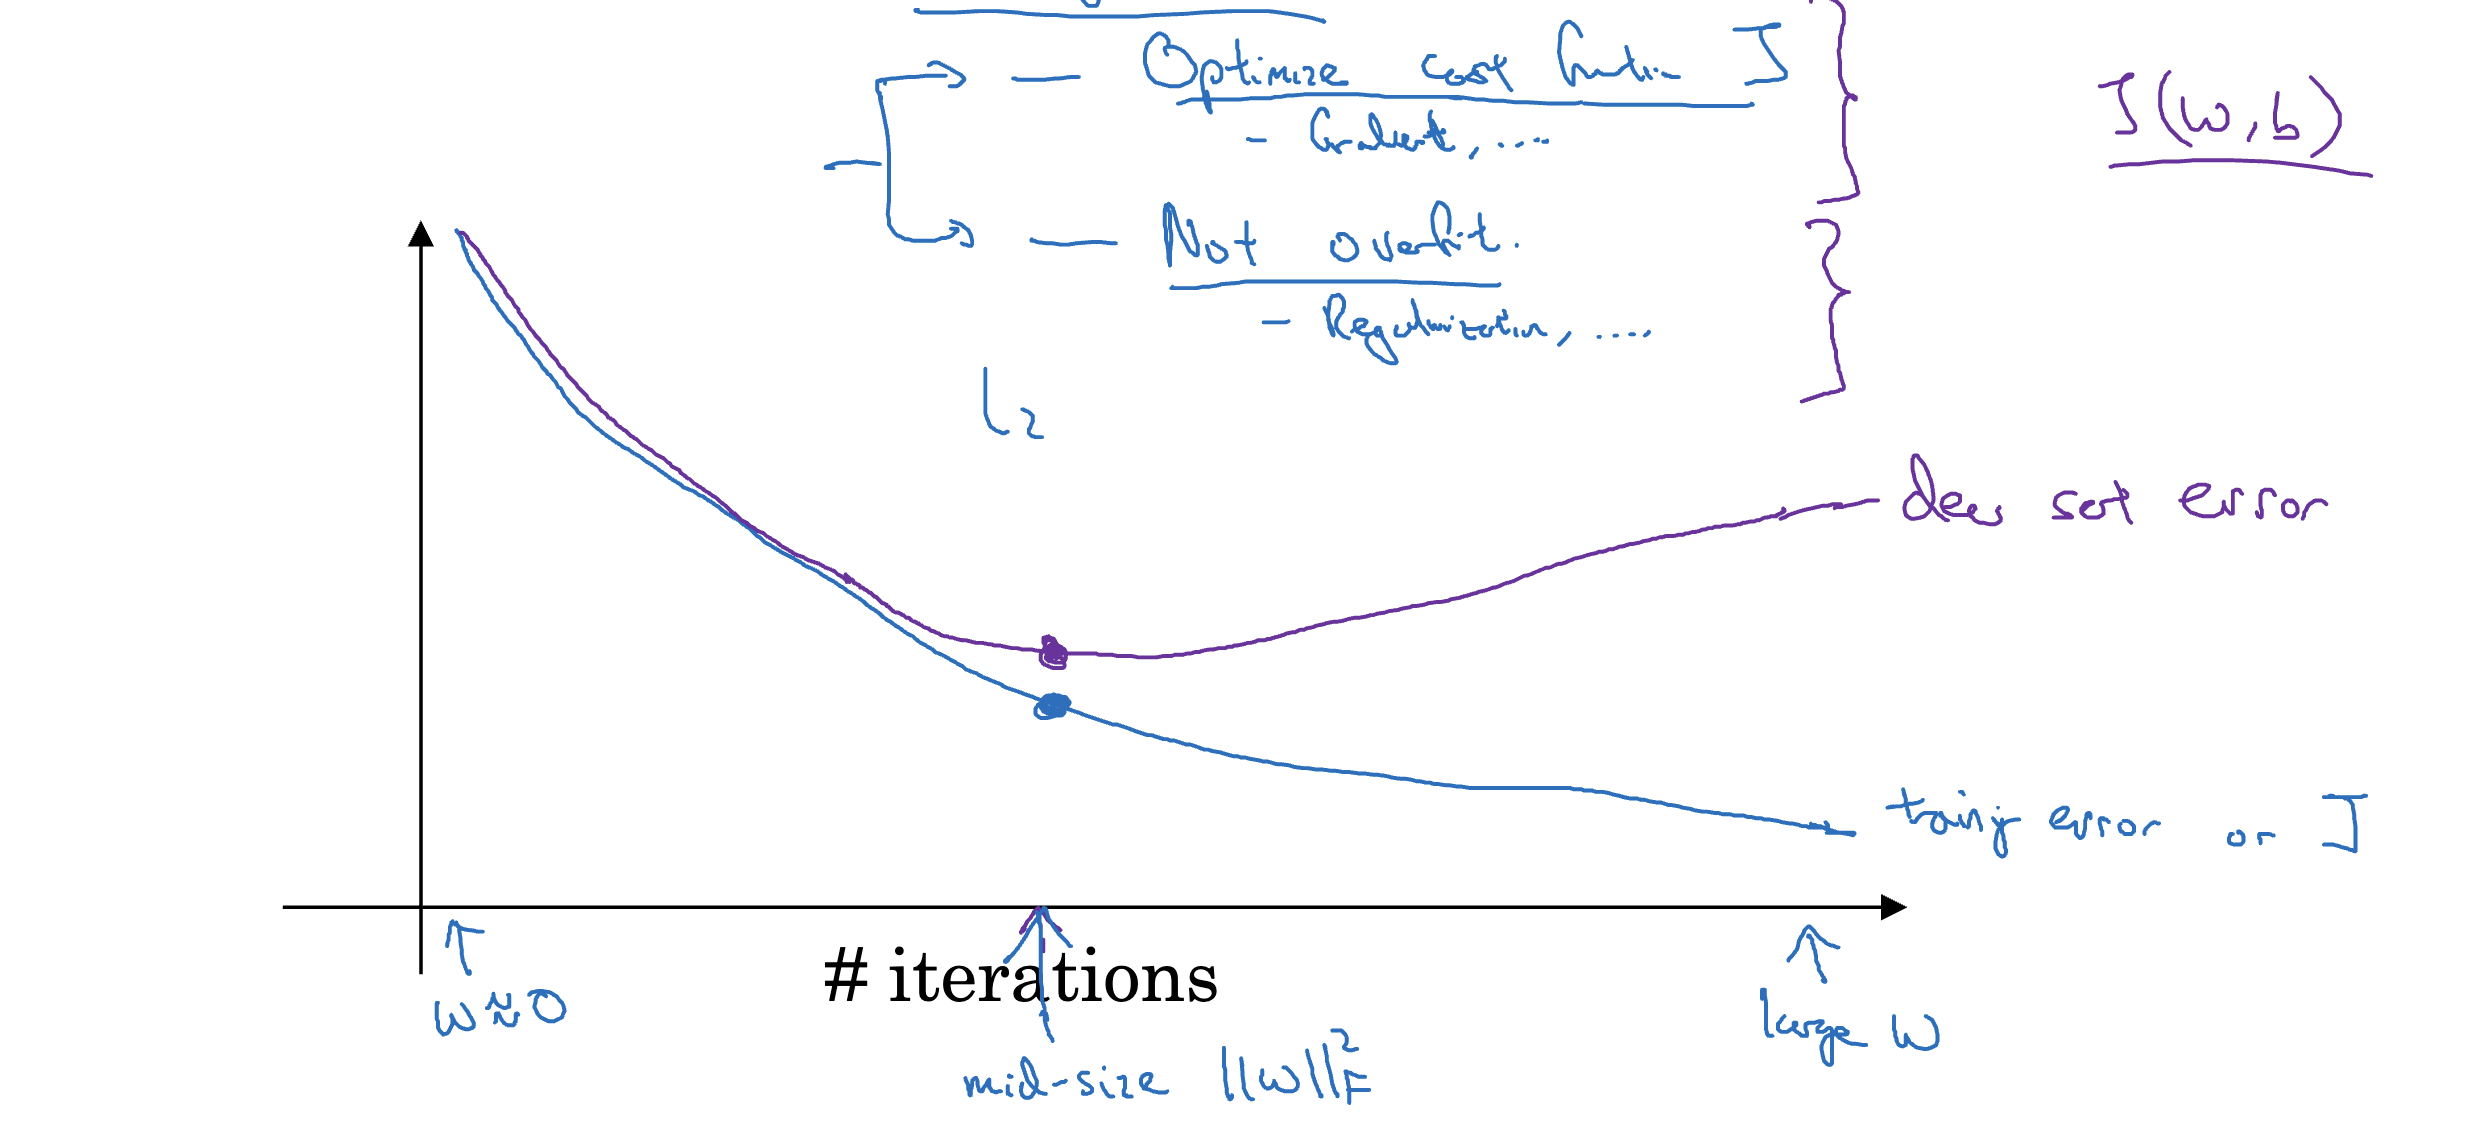 — Optimize cost function J
- Gradient, ....
J(w,b)
— Not overfit.
- Regularization, ....
L2
dev set error
training error or J
# iterations
w≈0
large w
mid-size ||w||²_F